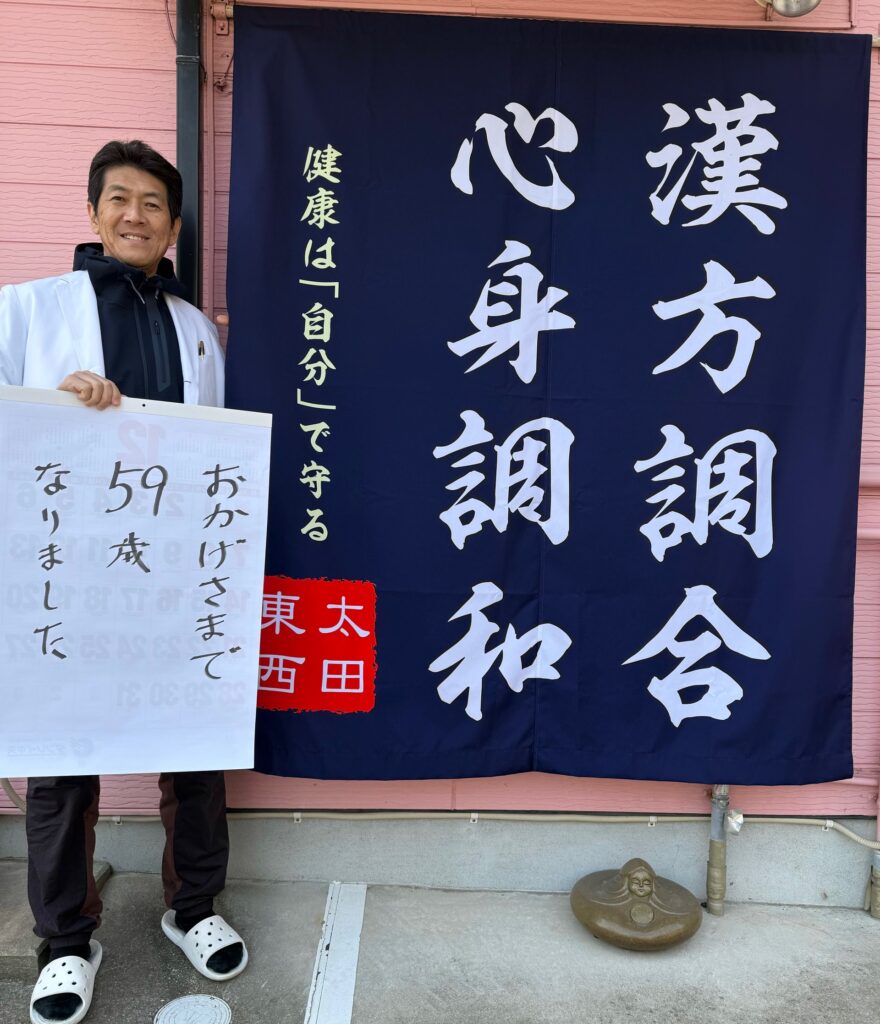 漢方調合
心身調和
健康は「自分」で守る
太田
東西
おかげさまで
59歳
なりました